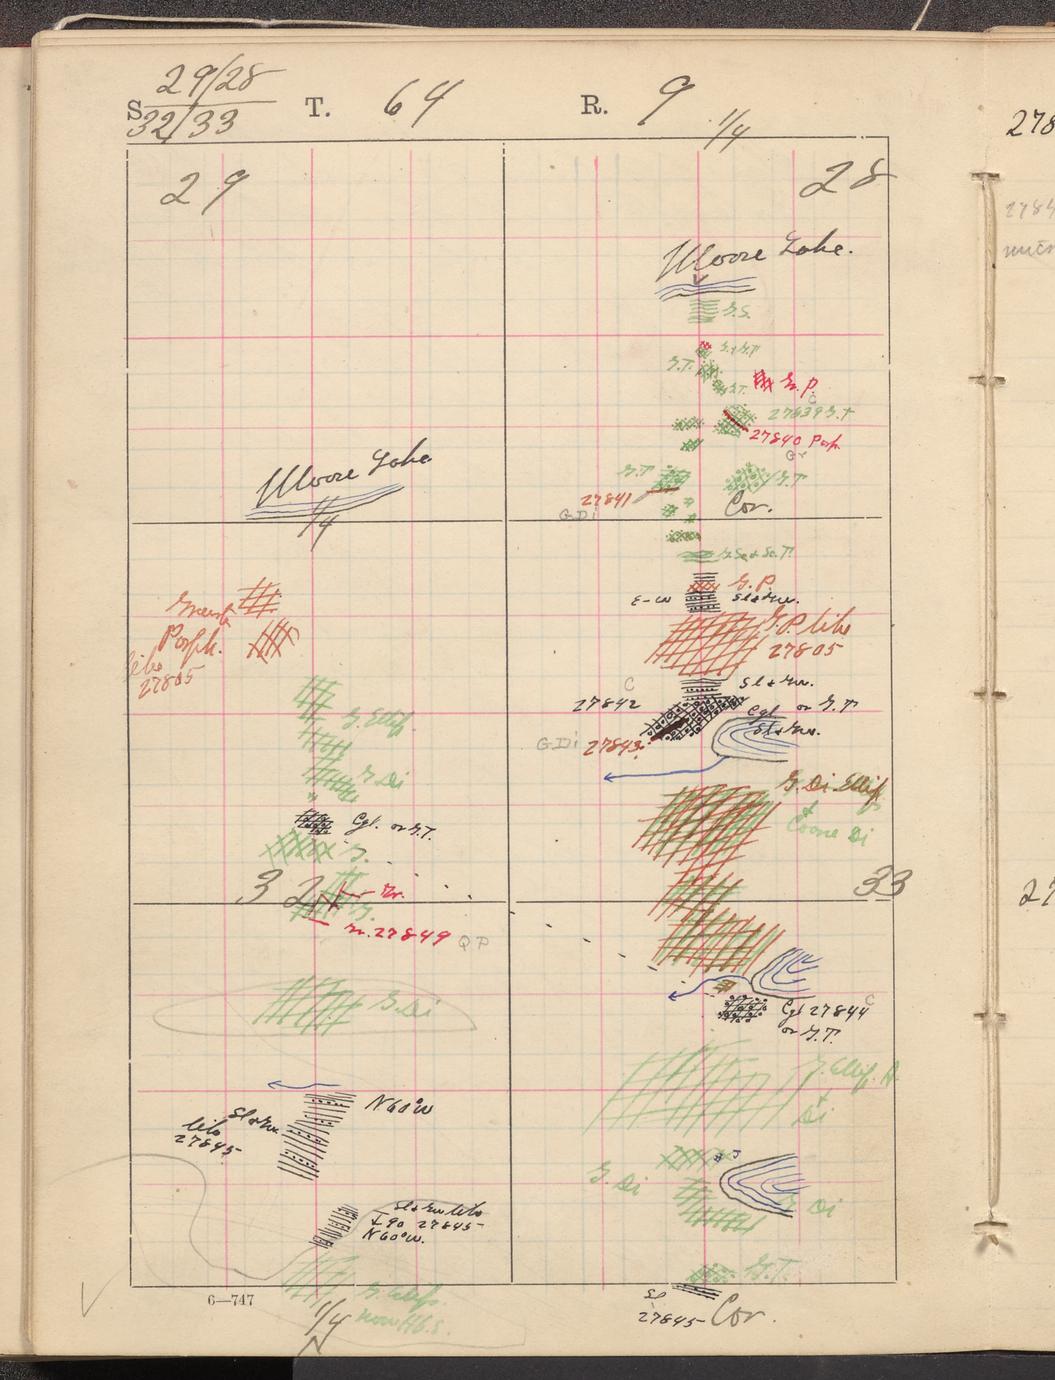 S 29/28
32/33
T. 64 R. 9
1/4
29
28
Moore Lake.
G.S.
G.T.
Gr. P.
27839 G.T
C
27840 Porp.
Gr
Moore Lake
1/4
G.T
G.T
27841
G.Di
Cor.
G.P.
E-W
Sl & Gw.
G.P. like
27805
Porph.
like
27805
Sl & Gw.
C
27842
Cgl or G.T
Sl & Gw.
G.Di
27843
G. Ellip.
G. Di
G. Di Ellip
&
Coarse Di
Cgl. or G.T.
G.
32
33
Gr.
G.
Gr. 27849
QP
G. Di
Cgl 27844
C
or G.T.
N60°W
Sl & Gw.
like
27845
G. Ellip. &
Di
G. Di
G. Di
Sl & Gw like
90 27845
N60°W.
G.T.
G. Ellip.
6—747
1/4
N
Sl
27845
Cor.
278
2784
27